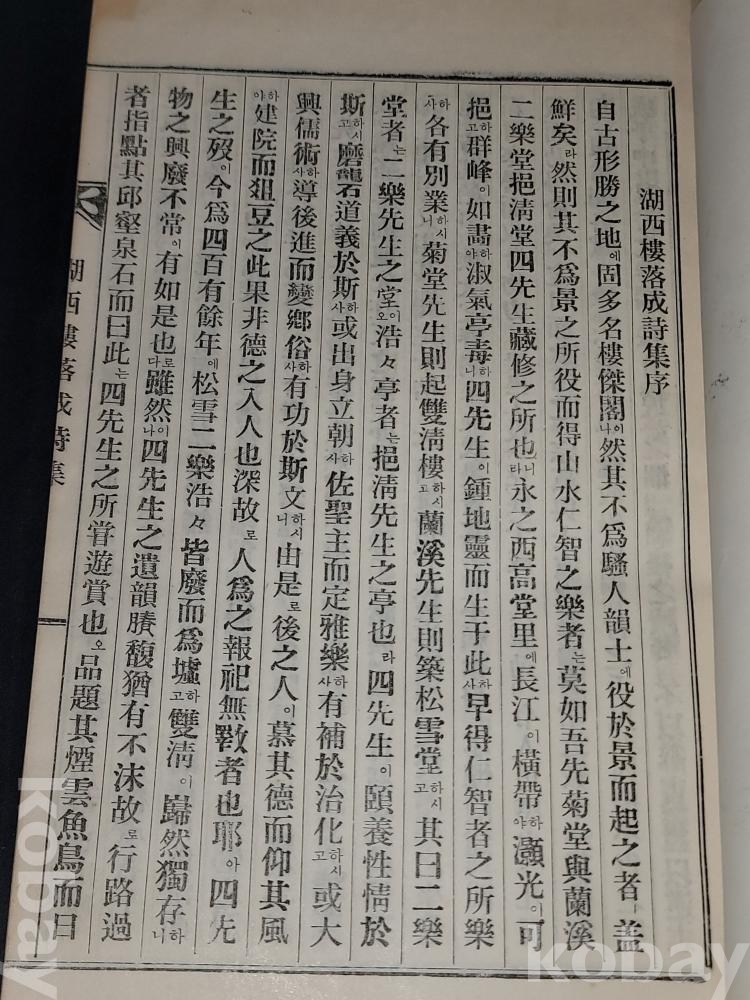 湖西樓落成詩集序
自古形勝之地에固多名樓傑閣이나然其不爲騷人韻士에役於景而起之者ㅣ蓋
鮮矣라然則其不爲景之所役而得山水仁智之樂者는莫如吾先菊堂與蘭溪
二樂堂挹淸堂四先生藏修之所也니라永之西高堂里에長江이橫帶하야灝光이可
挹하고群峰이如畵하야淑氣亭毒하니四先生이鍾地靈而生于此하사早得仁智者之所樂
하사各有別業하시니菊堂先生則起雙淸樓하시고蘭溪先生則築松雪堂하시고其曰二樂
堂者는二樂先生之堂이오浩々亭者는挹淸先生之亭也라四先生이頤養性情於
斯하시고磨礱道義於斯하사或出身立朝하사佐聖主而定雅樂하사有補於治化하시고或大
興儒術하사導後進而變鄕俗하사有功於斯文하시니由是로後之人이慕其德而仰其風
하야建院而狙豆之此果非德之入人也深故로人爲之報祀無斁者也耶아四先
生之歿이今爲四百有餘年에松雪二樂浩々皆廢而爲墟하고雙淸이巋然獨存하니
物之興廢不常이有如是也로다雖然이나四先生之遺韻賸馥猶有不沫故로行路過
者指點其邱壑泉石而曰此는四先生之所嘗遊賞也오品題其煙雲魚鳥而曰
湖西樓落成詩集
kobay
kobay